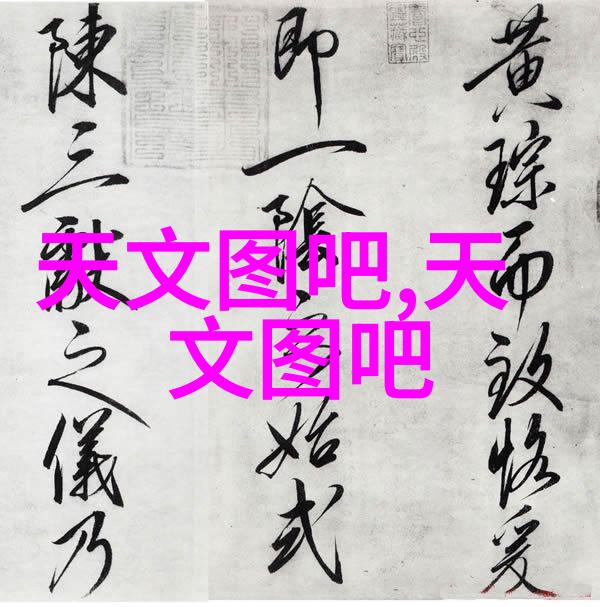 黄琮而致恪爰
即一陰始式
陳三獻之儀乃
天文图吧,天
文图吧